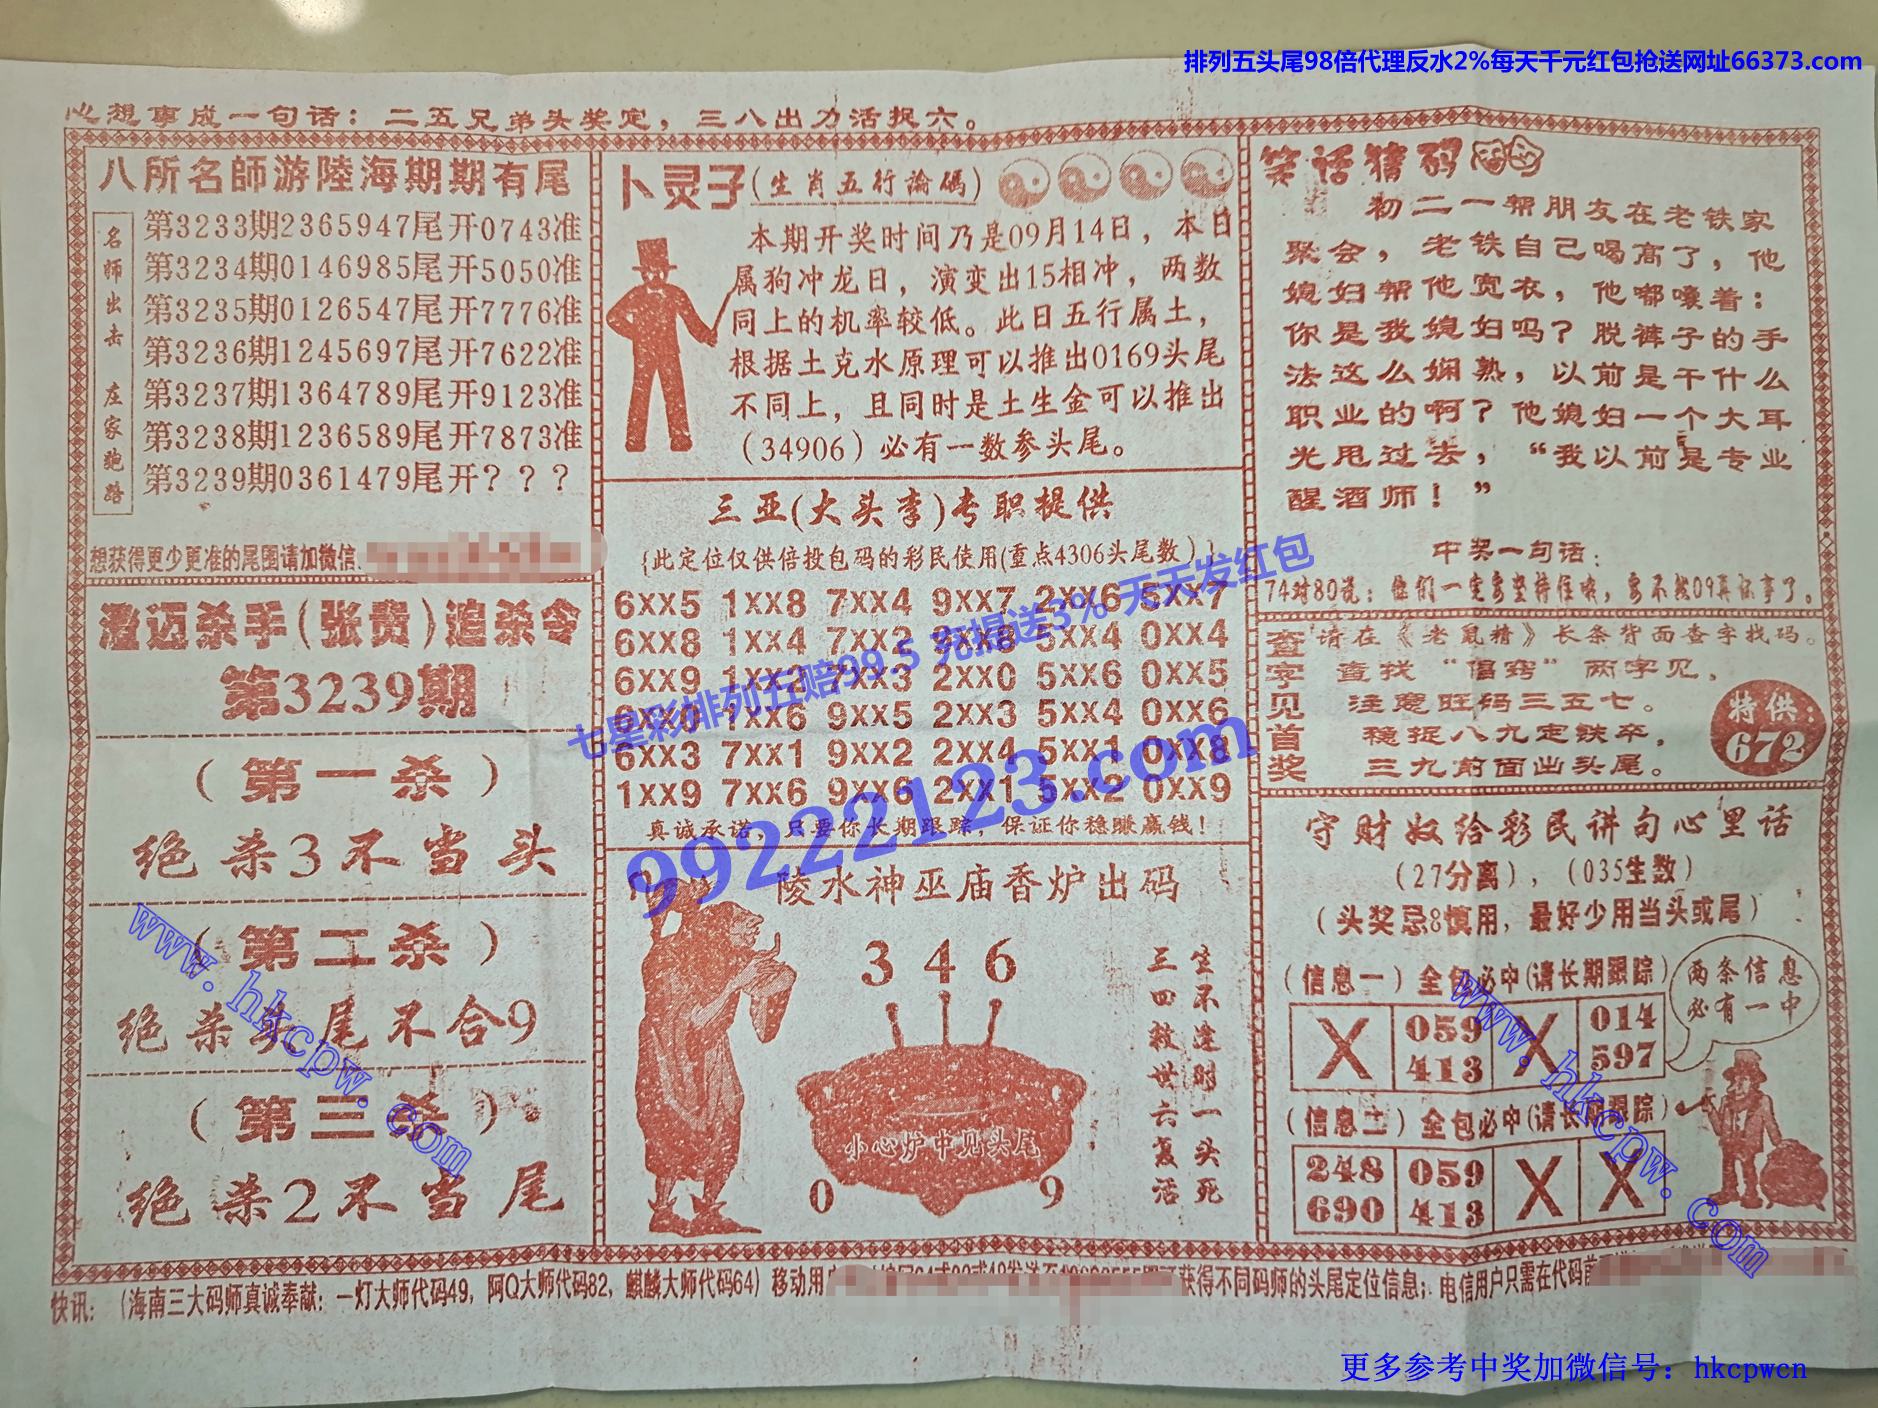 排列五头尾98倍代理反水2%每天千元红包抢送网址66373.com
心想事成一句话：二五兄弟头奖定，三八出力活捉六。
八所名師游陸海期期有尾
名师出击 庄家跑路
第3233期2365947尾开0743准
第3234期0146985尾开5050准
第3235期0126547尾开7776准
第3236期1245697尾开7622准
第3237期1364789尾开9123准
第3238期1236589尾开7873准
第3239期0361479尾开？？？
想获得更少更准的尾围请加微信
澄迈杀手(张贵)追杀令
第3239期
（第一杀）
绝杀3不当头
（第二杀）
绝杀头尾不合9
（第三杀）
绝杀2不当尾
卜灵子(生肖五行論碼)
本期开奖时间乃是09月14日，本日
属狗冲龙日，演变出15相冲，两数
同上的机率较低。此日五行属土，
根据土克水原理可以推出0169头尾
不同上，且同时是土生金可以推出
（34906）必有一数参头尾。
三亚(大头李)专职提供
{此定位仅供倍投包码的彩民使用(重点4306头尾数）}
6XX5 1XX8 7XX4 9XX7 2XX6 5XX7
6XX8 1XX4 7XX2 9XX8 5XX4 0XX4
6XX9 1XX2 7XX3 2XX0 5XX6 0XX5
6XX0 1XX6 9XX5 2XX3 5XX4 0XX6
6XX3 7XX1 9XX2 2XX4 5XX1 0XX8
1XX9 7XX6 9XX6 2XX1 5XX2 0XX9
真诚承诺，只要你长期跟踪，保证你稳赚赢钱！
七星彩排列五赔99.5 充提送3% 天天发红包
99222123.com
陵水神巫庙香炉出码
346
小心炉中见头尾
0 9
生不逢时一头死
三四救世六复活
笑话猜码
初二一帮朋友在老铁家
聚会，老铁自己喝高了，他
媳妇帮他宽衣，他嘟囔着：
你是我媳妇吗？脱裤子的手
法这么娴熟，以前是干什么
职业的啊？他媳妇一个大耳
光甩过去，“我以前是专业
醒酒师！”
中奖一句话：
74对80说：他们一定要坚持住哦，要不然09再坏事了。
查字见首奖
请在《老鼠精》长条背面查字找码。
查找“倡窍”两字见，
注意旺码三五七。
稳捉八九定铁卒，
三九前面出头尾。
特供：
672
守财奴给彩民讲句心里话
（27分离），（035生数）
（头奖忌8慎用，最好少用当头或尾）
（信息一）全包必中(请长期跟踪)
X 059 X 014
413 597
两条信息
必有一中
（信息二）全包必中(请长期跟踪)
248 059 X X
690 413
www.hkcpw.com
www.hkcpw.com
快讯：（海南三大码师真诚奉献：一灯大师代码49，阿Q大师代码82，麒麟大师代码64）移动用 获得不同码师的头尾定位信息；电信用户只需在代码前
更多参考中奖加微信号：hkcpwcn